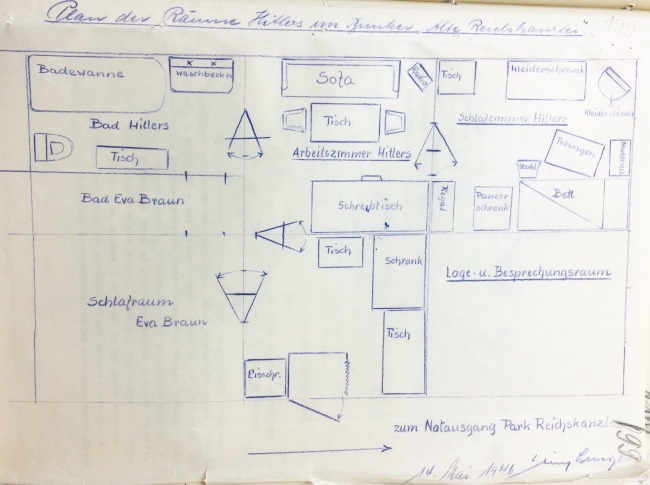 Plan der Räume Hitlers im Bunker Alte Reichskanzlei
Badewanne
Waschbecken
Sofa
Radio
Tisch
Kleiderschrank
Kleiderständer
Bad Hitlers
Tisch
Tisch
Arbeitszimmer Hitlers
Schlafzimmer Hitlers
Teewagen
Nachttisch
Stuhl
Bad Eva Braun
Schreibtisch
Regal
Panzer
schrank
Bett
Tisch
Schrank
Lage-u. Besprechungsraum
Schlafraum
Eva Braun
Tisch
Eisschr.
zum Notausgang Park Reichskanzlei
14. Mai 1946
199